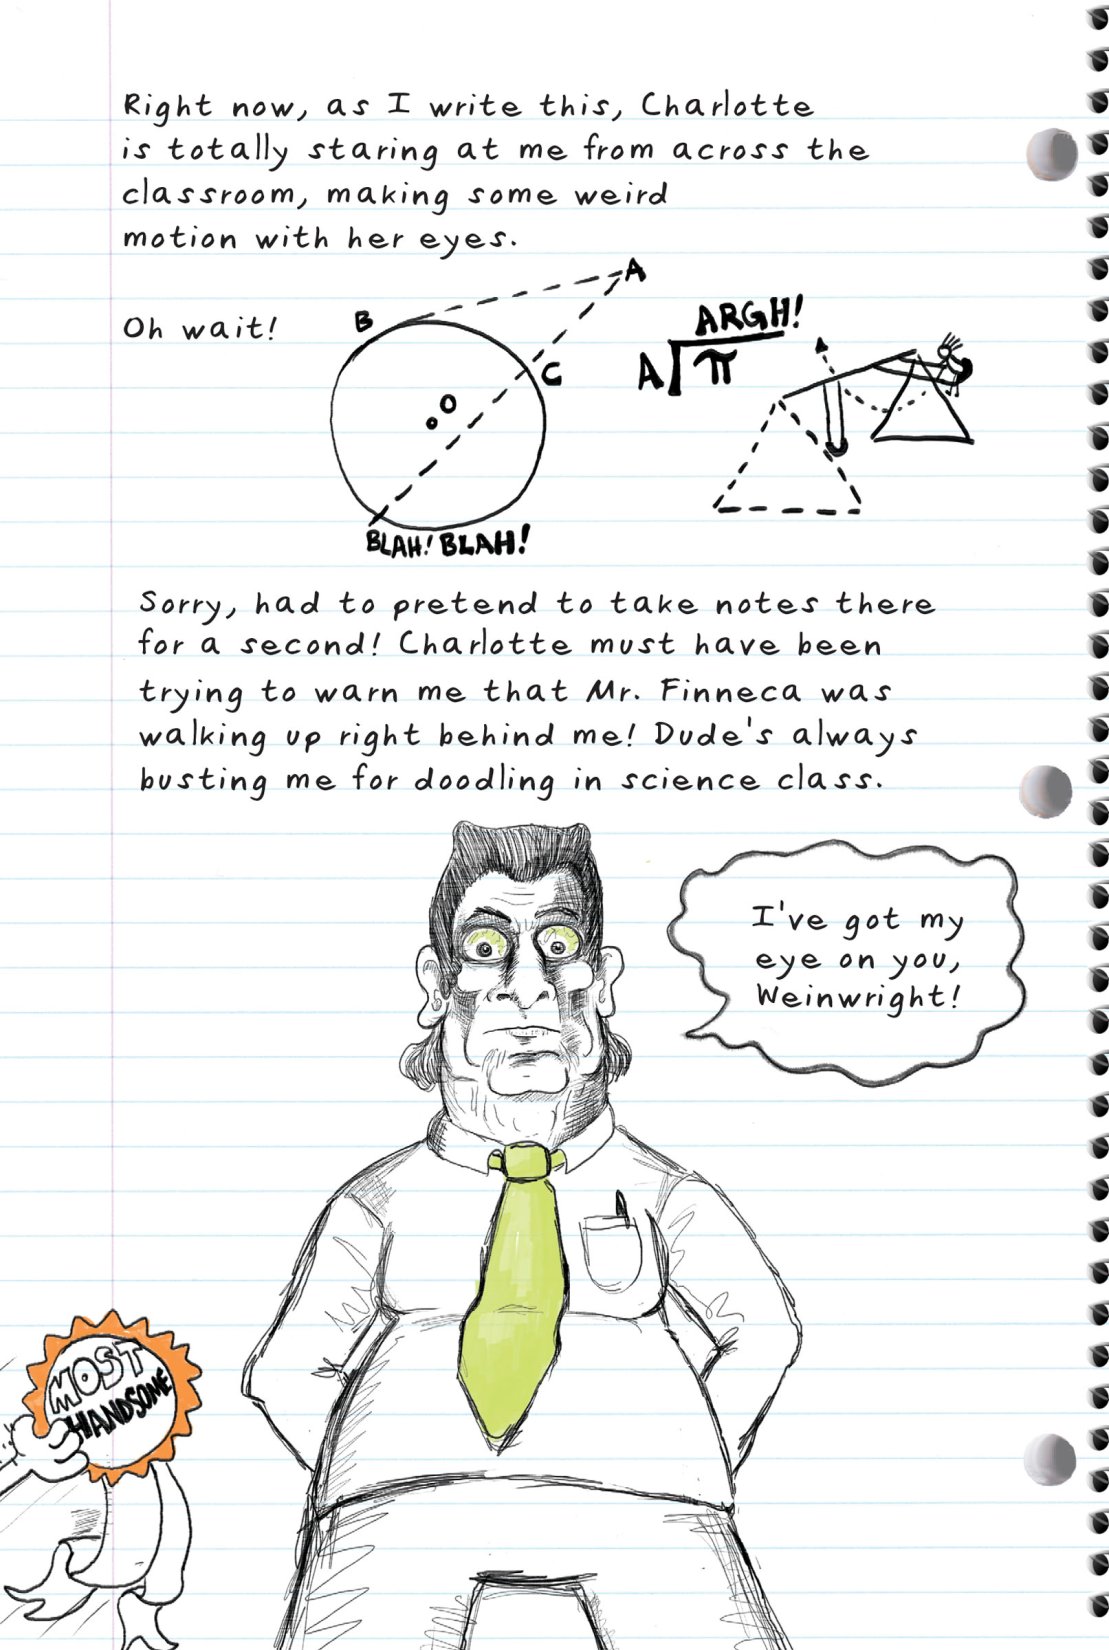 Right now, as I write this, Charlotte
is totally staring at me from across the
classroom, making some weird
motion with her eyes.
Oh wait!
A
B
C
O
BLAH! BLAH!
ARGH!
A√π
Sorry, had to pretend to take notes there
for a second! Charlotte must have been
trying to warn me that Mr. Finneca was
walking up right behind me! Dude's always
busting me for doodling in science class.
I've got my
eye on you,
Weinwright!
MOST
HANDSOME